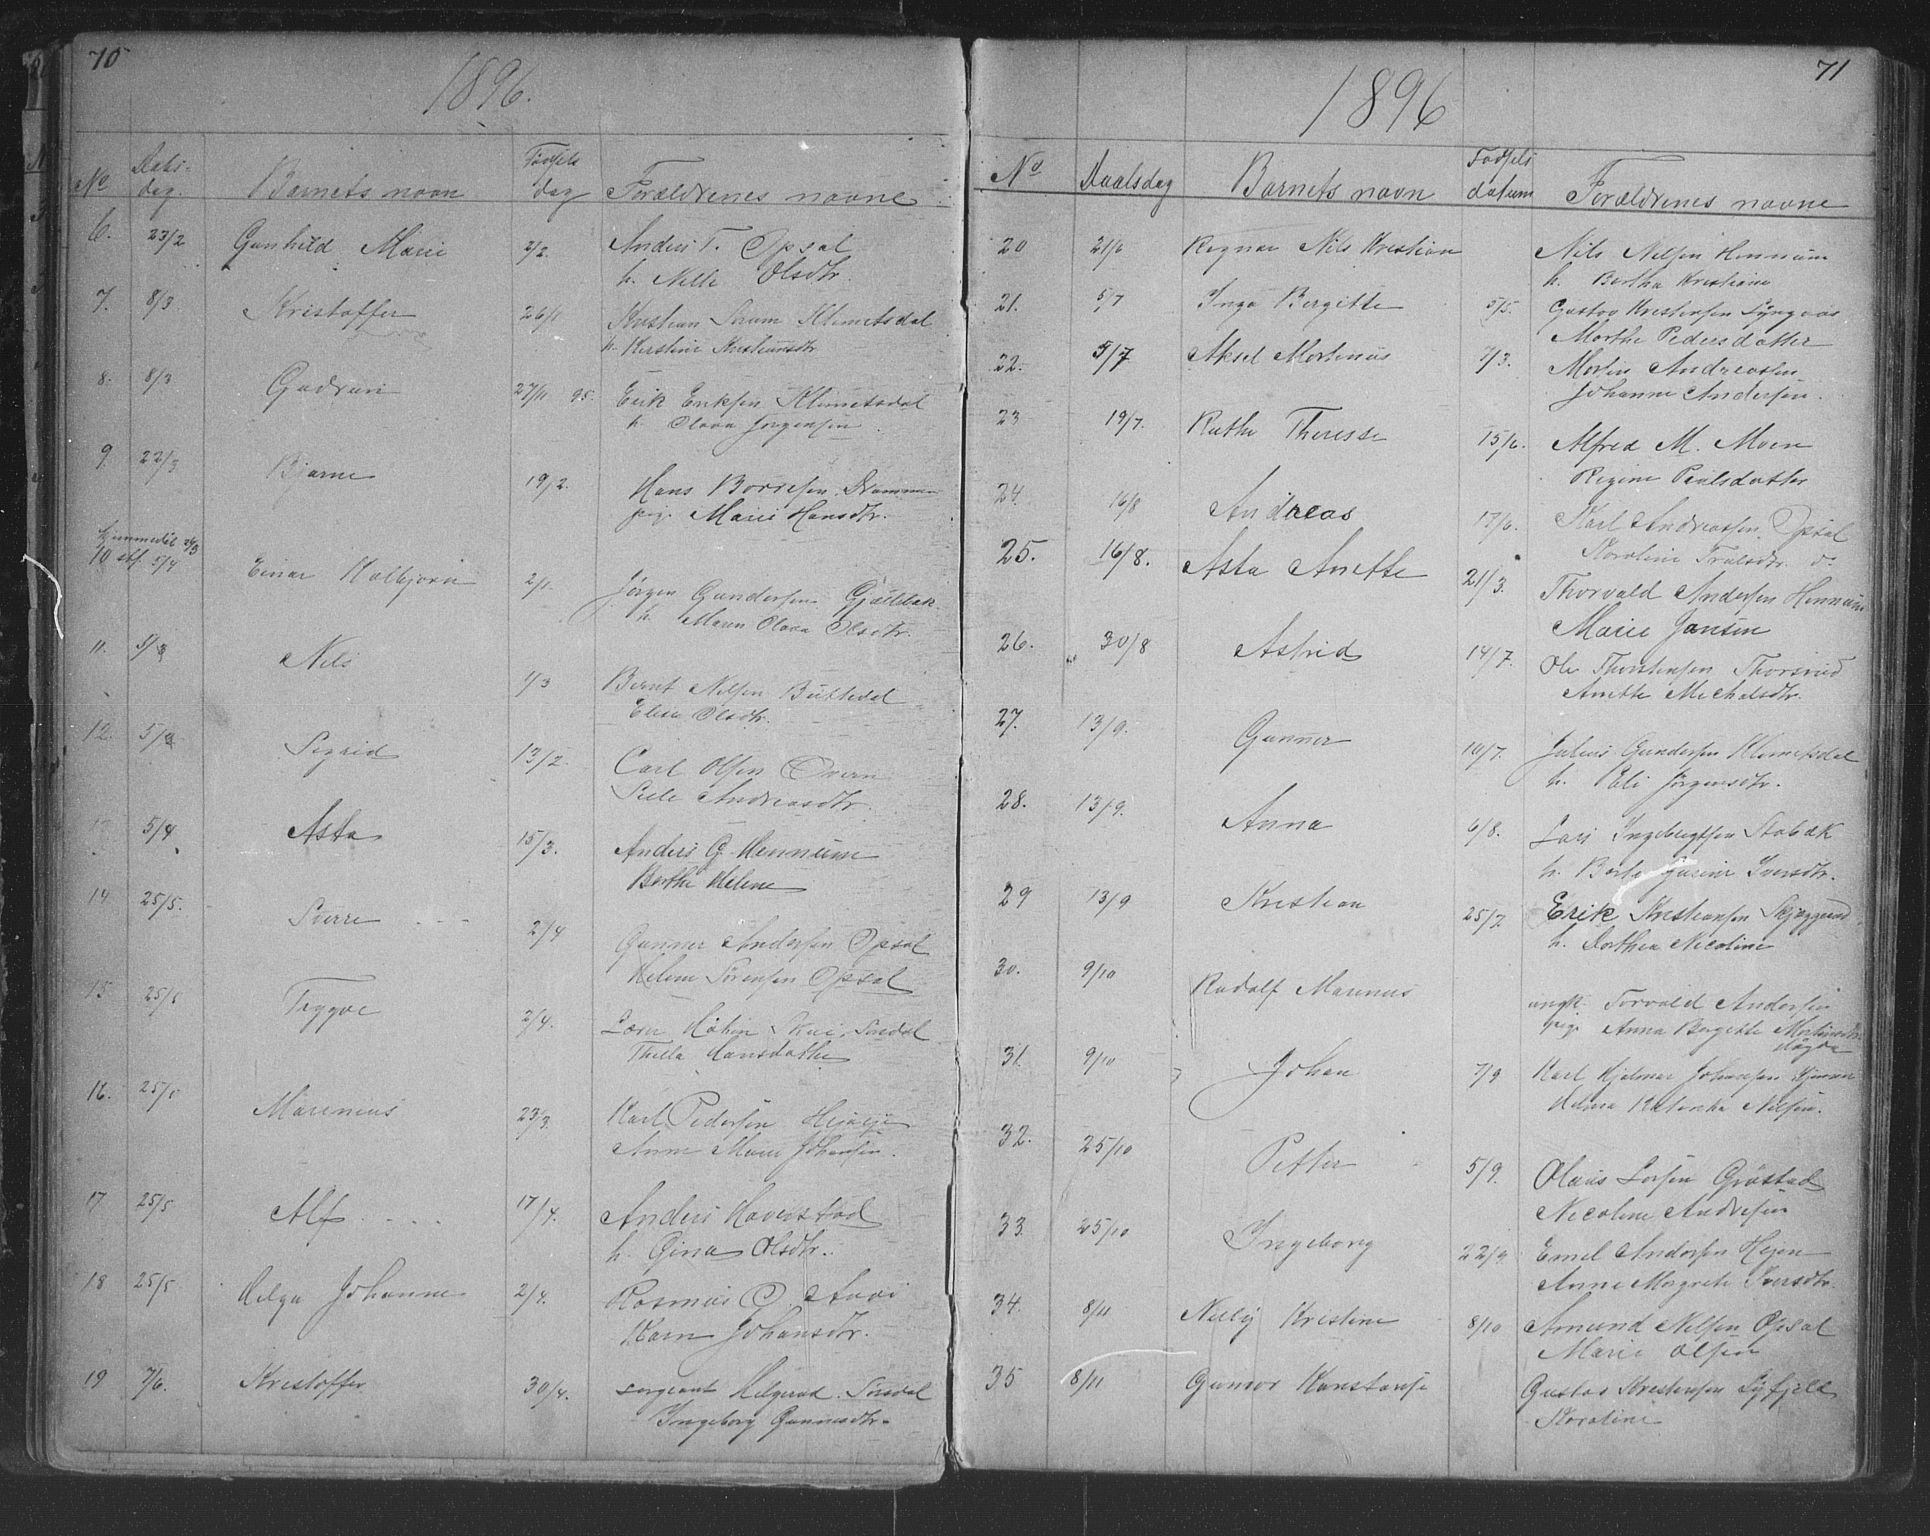 70
1896.
No Daabsdag. Barnets navn Fødselsdag Forældrenes navne
6. 23/2 Gunhild Marie 2/2. Anders T. Opsal
h. Nille Olsdtr.
7. 8/3 Kristoffer 26/1 Kristian Strøm Klemetsdal
h. Kirstine Kristiansdtr
8. 8/3 Gudrun 27/11 95. Erik Eriksen Klemetsdal
h. Olava Jørgensen
9. 22/3 Bjarne 19/2. Hans Borresen Drammen
pig. Marie Hansdtr.
hjemmedøbt
10 stf. 5/4 Einar Kolbjørn 2/1. Jørgen Gundersen
h. Maren Olava Olsdtr.
11. Nils 1/3 Bernt Nilsen
Elise Olsdtr.
12. Sigrid 13/2. Carl Olsen
Andreasdtr.
13 5/4 Asta 15/3. Anders G. Hennum
Berthe Helene
14 25/5. Sverre 2/4 Gunner Andersen Opsal
Helene Sørensen Opsal
15 25/5 Trygve 2/4. Søndal
Hansdatter
16. 25/5 Marenius 23/3. Karl Pedersen
Anne Marie Johansen.
17 25/5 Alf 17/4. Anders Haverstad
h. Gina Olsdtr.
18 25/5 Helga Johanne 2/4. Rasmus O.
Karen Johansdtr.
19 7/6. Kristoffer 30/4. Sergeant Helgerud Søndal
Ingeborg Gunnesdtr.
71
1896
No Daabsdag Barnets navn Fødselsdatum Forældrenes navne
20 21/6 Ragnar Nils Kristian Nils Nilsen Hennum
h. Berthe Kristiane
21. 5/7 Inga Bergitte 5/5. Gustav Kristensen Lyngaas
Marthe Pedersdatter
22. 5/7 Aksel Martinius 7/3. Martin Andreasen
Johanne Andersen.
23 19/7. Ruthe Therese 15/6. Alfred M. Moen
Regine Paulsdatter
24. 16/8 Andreas 17/6. Karl Andreassen Opsal
Karoline Trulsdtr. do
25. 16/8. Asta Anette 21/3. Thorvald Andersen Hennum
Marie Jansen
26. 30/8 Astrid 14/7. Ole Thorstensen Thorsrud
Anette Michalsdtr.
27. 13/9. Gunner 10/7. Julius Gundersen Klemetsdal
h. Eli Jørgensdtr.
28. 13/9. Anna 6/8. Lars Ingebregtsen Stabæk
h. Iversdtr.
29 13/9 Kristian 25/7 Erik Kristiansen
h. Dorthea Nicoline
30. 9/10 Rudolf Marenius ungk. Torvald Andersen
pig. Anna Bergitte
31. 9/10 Johan 7/9 Karl Hjalmar Johansen
Nilsen.
32. 25/10 Petter 5/9. Olaus Larsen Grøstad
Nicoline Andresen
33. 25/10 Ingeborg 22/9 Emil Andersen Hejen
Anne Margrete Iversdtr.
34. 8/11 Nelly Kristine 8/10 Amund Nilsen Opsal
Marie Olsen
35 8/11 Gunvor Konstanse Gustav Kristensen
Karoline